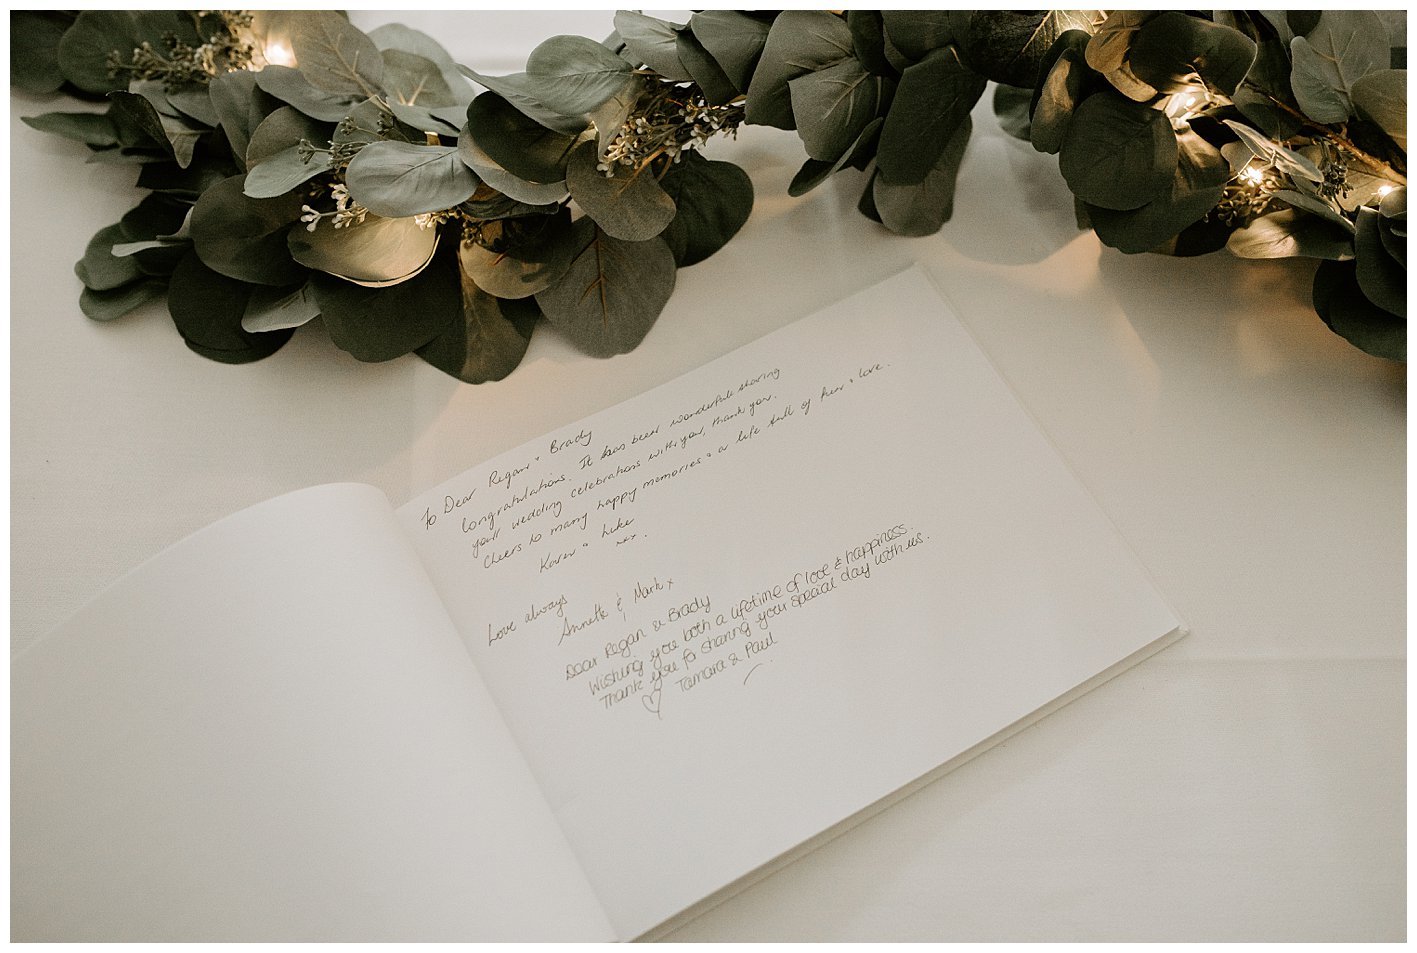 To Dear Regan & Brady
Congratulations. It has been wonderful sharing
your wedding celebrations with you, thank you.
Cheers to many happy memories & a life full of fun & love.
Karen & Luke
xxx.
Love always
Annette & Mark x
Dear Regan & Brady
Wishing you both a lifetime of love & happiness.
Thank you for sharing your special day with us.
Tamara & Paul